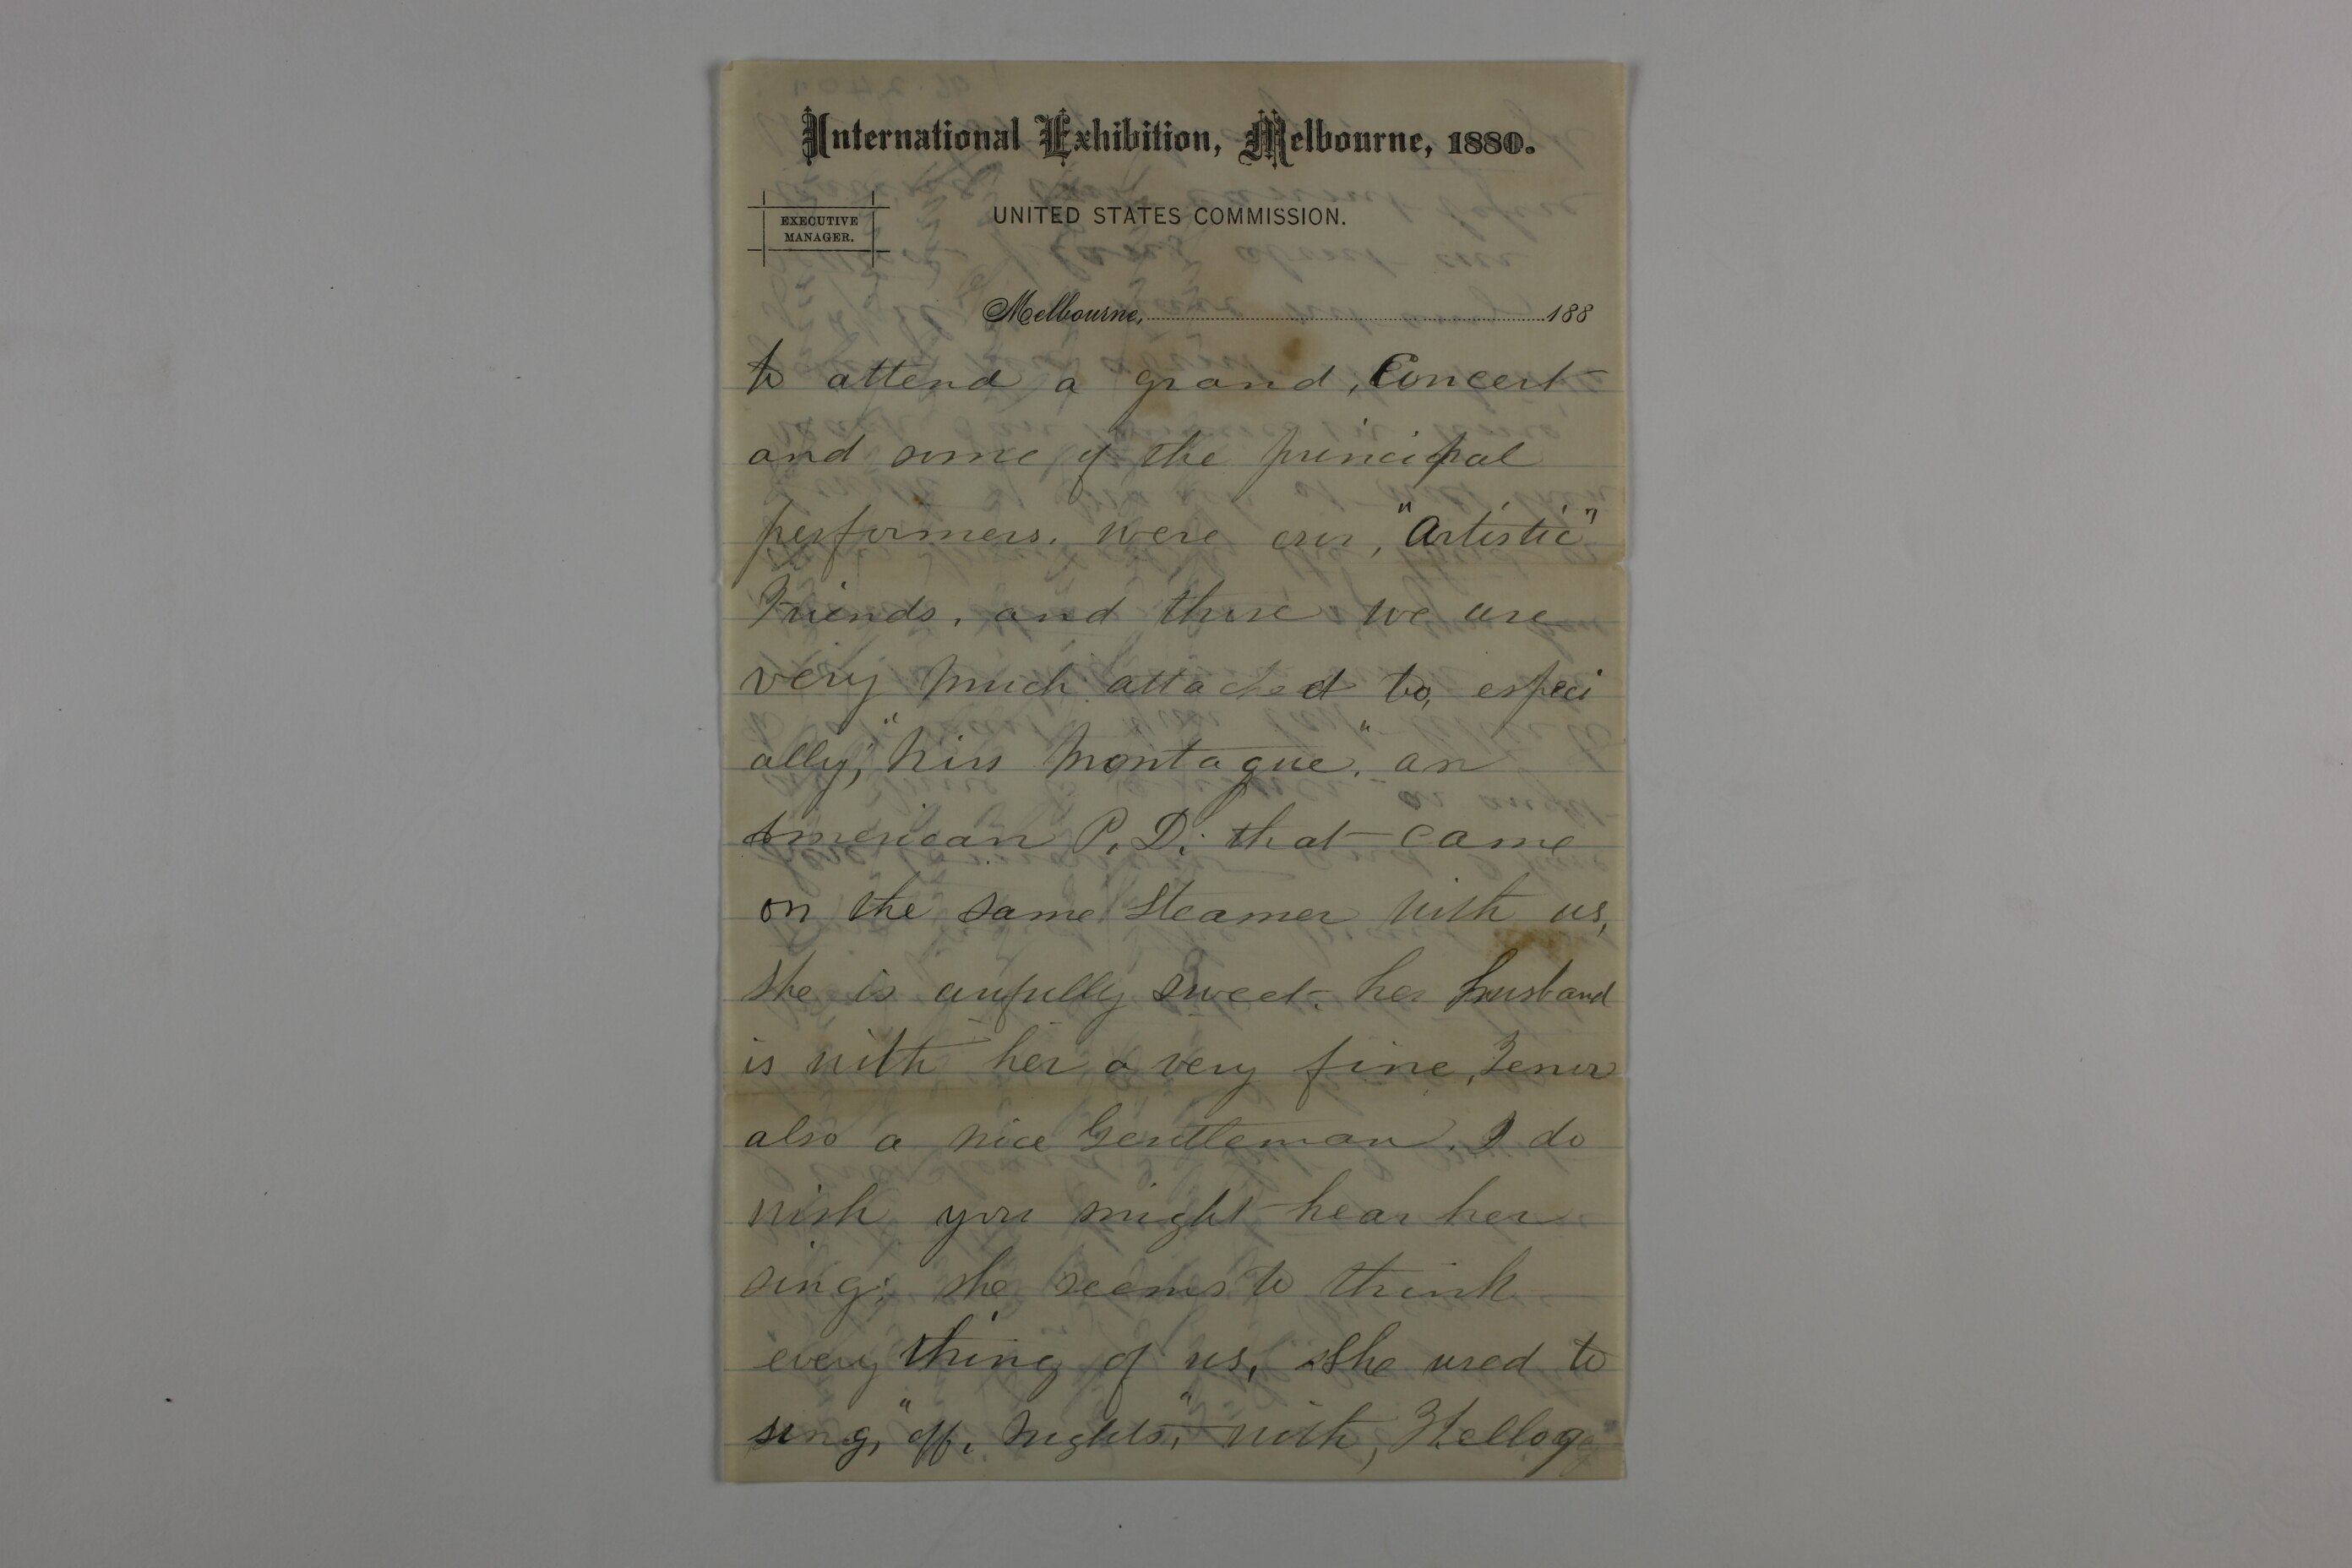 International Exhibition, Melbourne, 1880.
EXECUTIVE
MANAGER.
UNITED STATES COMMISSION.
Melbourne, 188
to attend a grand, Concert
and some of the principal
performers. were our, "Artistic"
Friends, and those we are
very much attached to, especi
ally, "Miss Montague," an
American P. D. that came
on the same Steamer with us,
she is awfully sweet. her husband
is with her a very fine, Tenor
also a nice Gentleman. I do
wish you might hear her
sing; she seems to think
every thing of us, she used to
sing, "off, nights," with, Kellogg